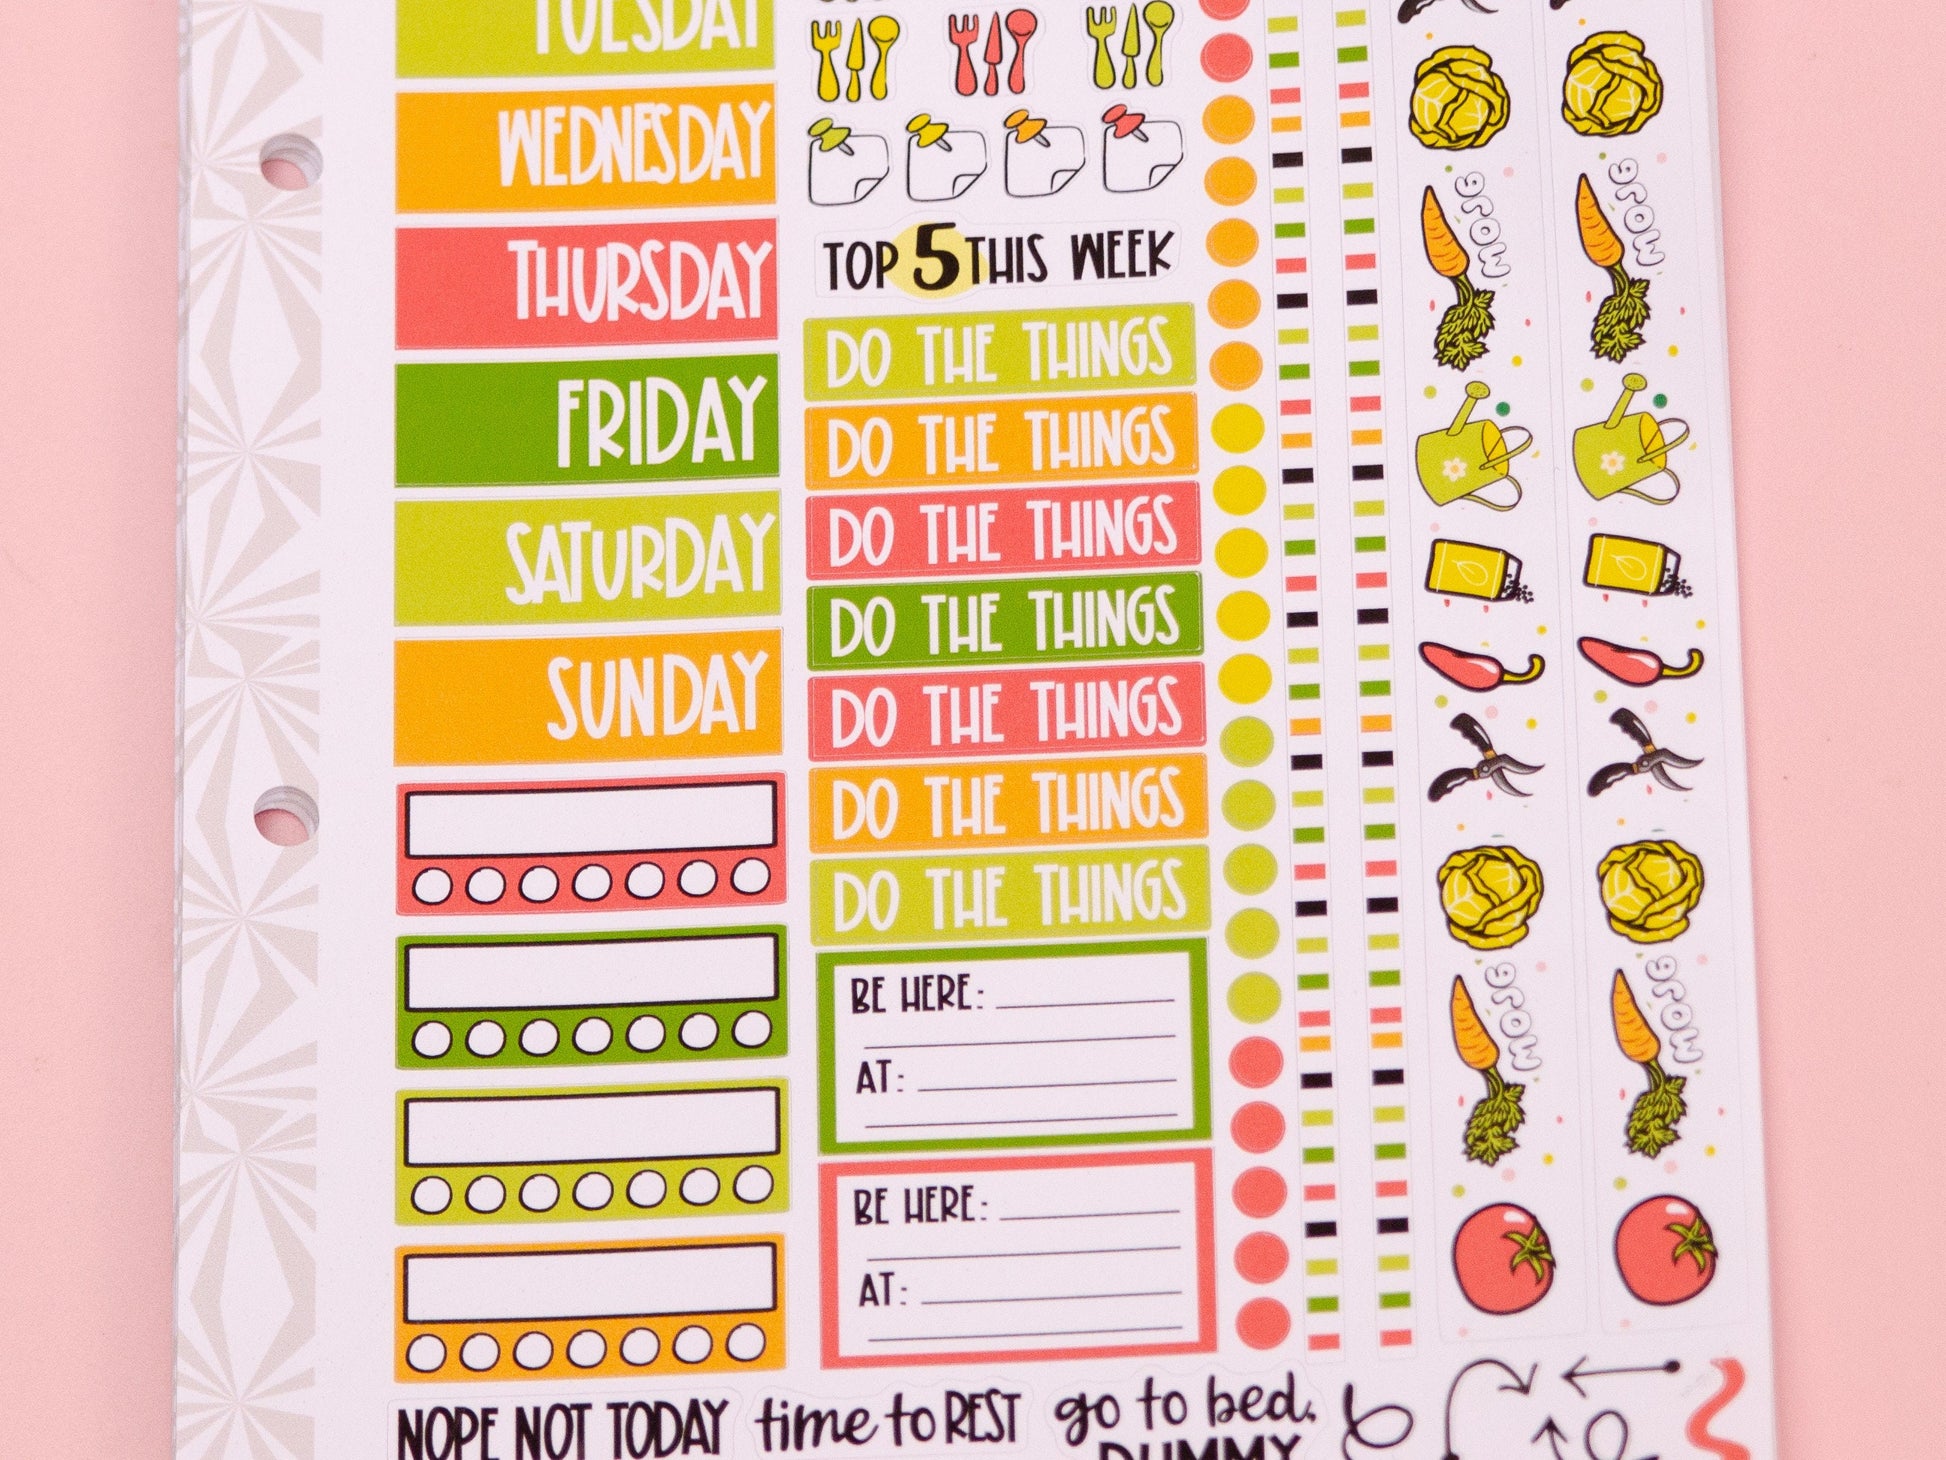 TUESDAY
WEDNESDAY
THURSDAY
FRIDAY
SATURDAY
SUNDAY
TOP 5 THIS WEEK
DO THE THINGS
DO THE THINGS
DO THE THINGS
DO THE THINGS
DO THE THINGS
DO THE THINGS
DO THE THINGS
BE HERE:
AT:
BE HERE:
AT:
grow
grow
grow
grow
NOPE NOT TODAY
time to REST
go to bed,
DUMMY